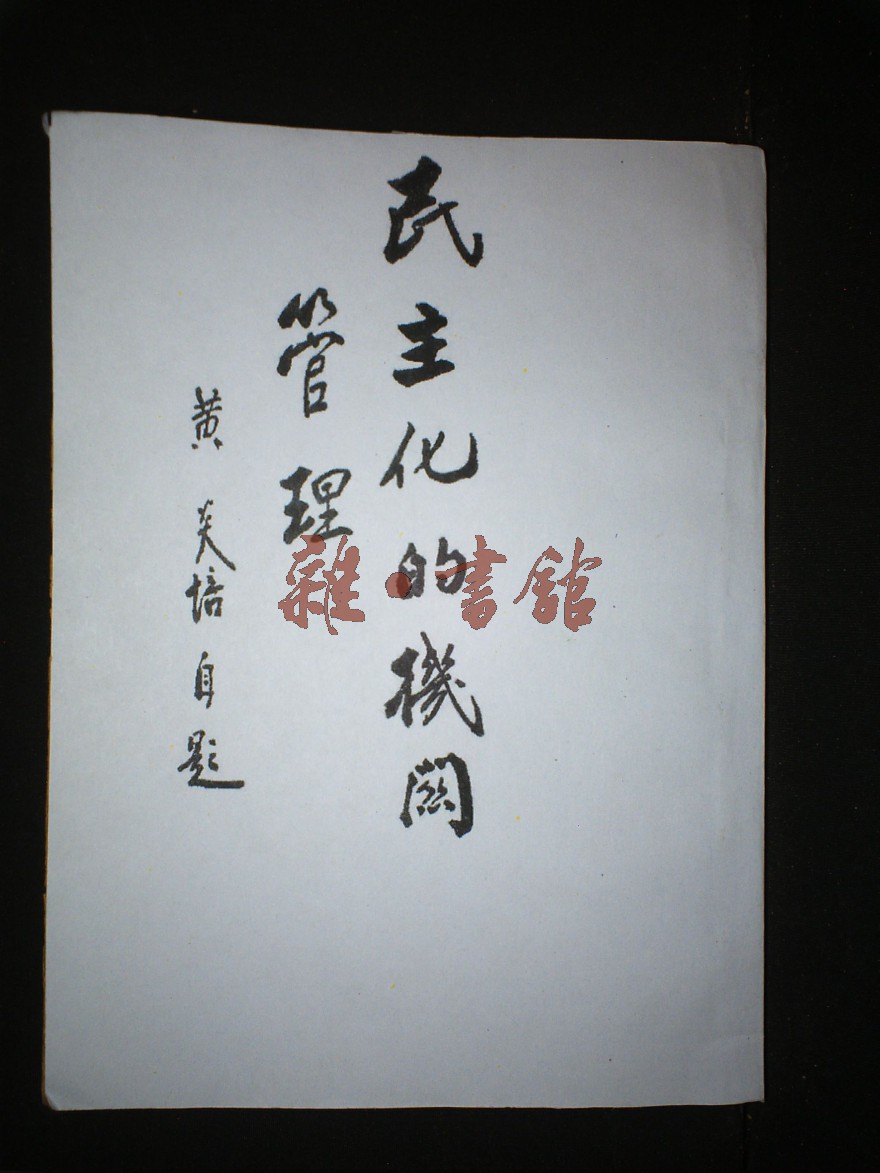 民主化的機關
管理
黄炎培自題
雜·書館